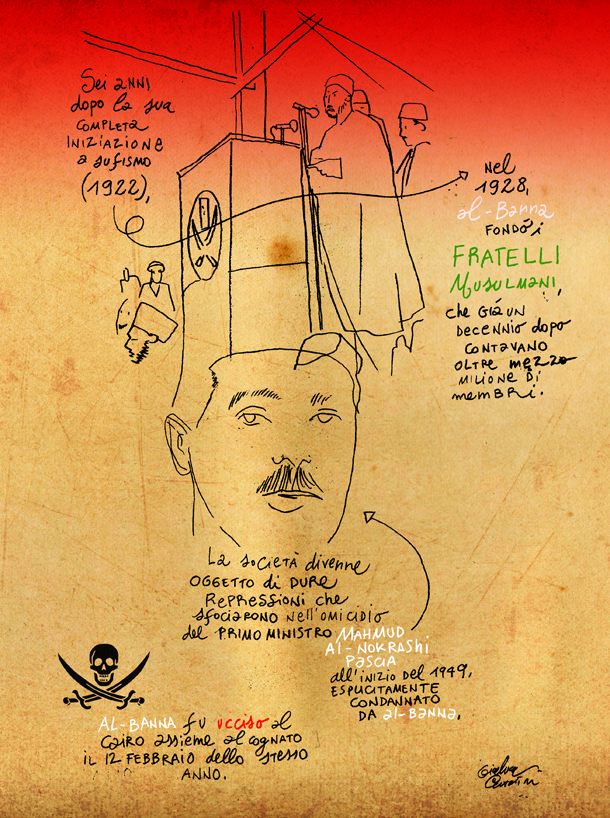 Sei anni
dopo la sua
completa
iniziazione
a sufismo
(1922),
Nel
1928,
al-Banna
fondò i
FRATELLI
Musulmani,
che già un
decennio dopo
contavano
oltre mezzo
milione di
membri.
La società divenne
oggetto di dure
repressioni che
sfociarono nell'omicidio
del PRIMO MINISTRO MAHMUD
Al-NOKRAShi
PASCIA
all'inizio del 1949,
ESPLICITAMENTE
CONDANNATO
DA al-Banna.
AL-BANNA fu ucciso al
Cairo assieme al cognato
il 12 FEBBRAIO dello stesso
ANNO.